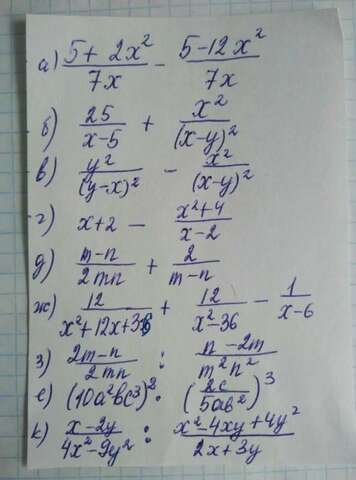 а) (5 + 2x²)/(7x) − (5 − 12x²)/(7x)
б) 25/(x − 5) + x²/(x − y)²
в) y²/(y − x)² − x²/(x − y)²
г) x + 2 − (x² + 4)/(x − 2)
д) (m − n)/(2mn) + 2/(m − n)
ж) 12/(x² + 12x + 36) + 12/(x² − 36) − 1/(x − 6)
з) (2m − n)/(2mn) : (n − 2m)/(m²n²)
е) (10a²bc³)² : (2c/(5ab²))³
к) (x − 2y)/(4x² − 9y²) : (x² − 4xy + 4y²)/(2x + 3y)